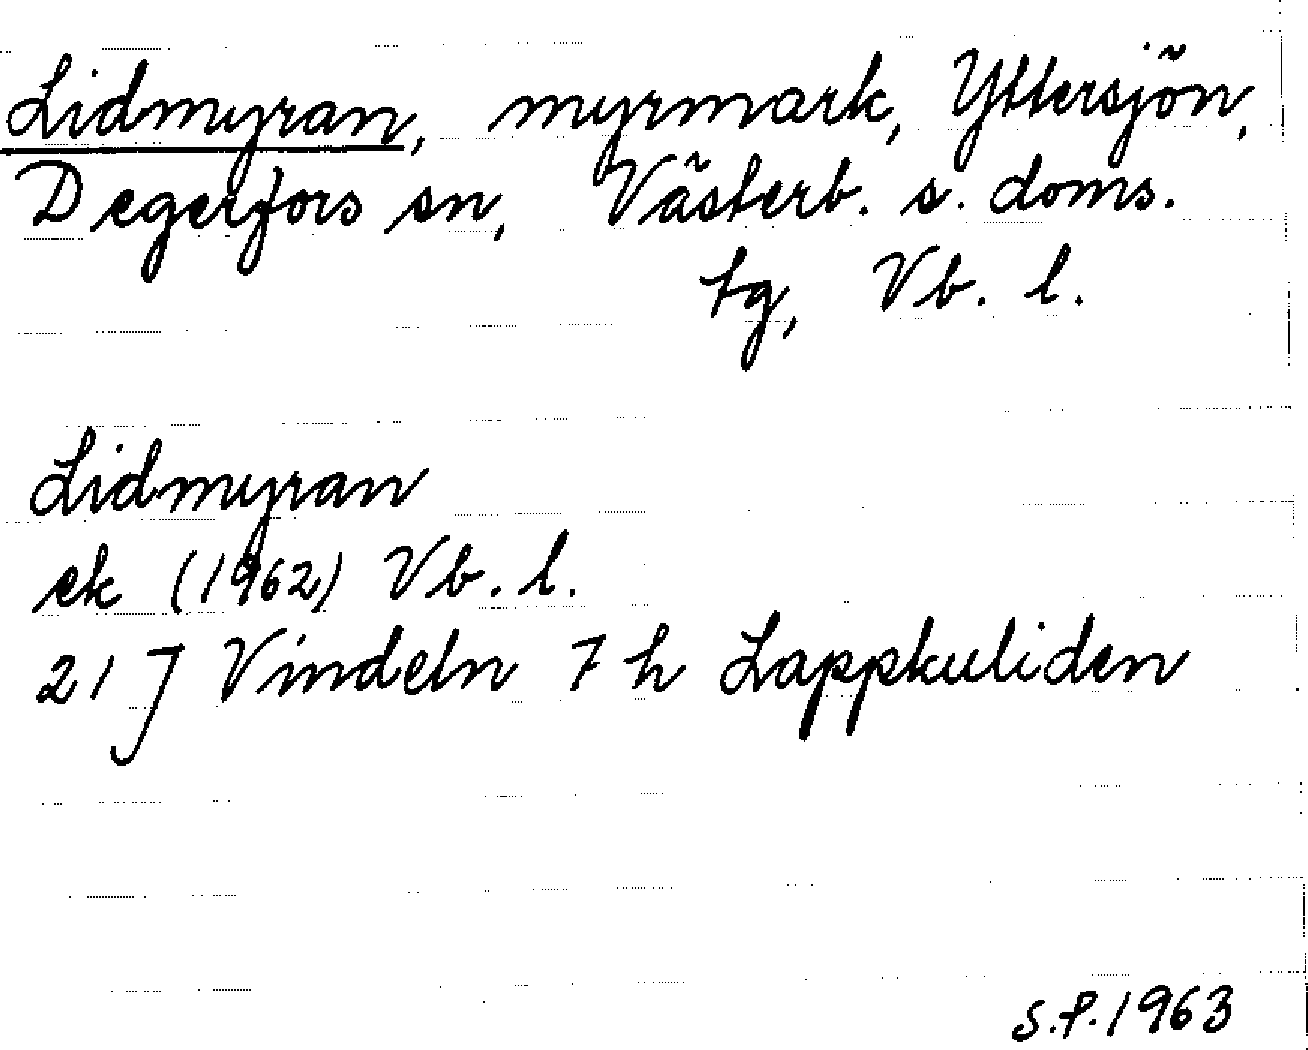 Lidmyran, myrmark, Yttersjön,
Degerfors sn, Västerb. s. doms.
tg, Vb. l.
Lidmyran
ek (1962) Vb. l.
21 J Vindeln 7 h Lappkuliden
S.P. 1963